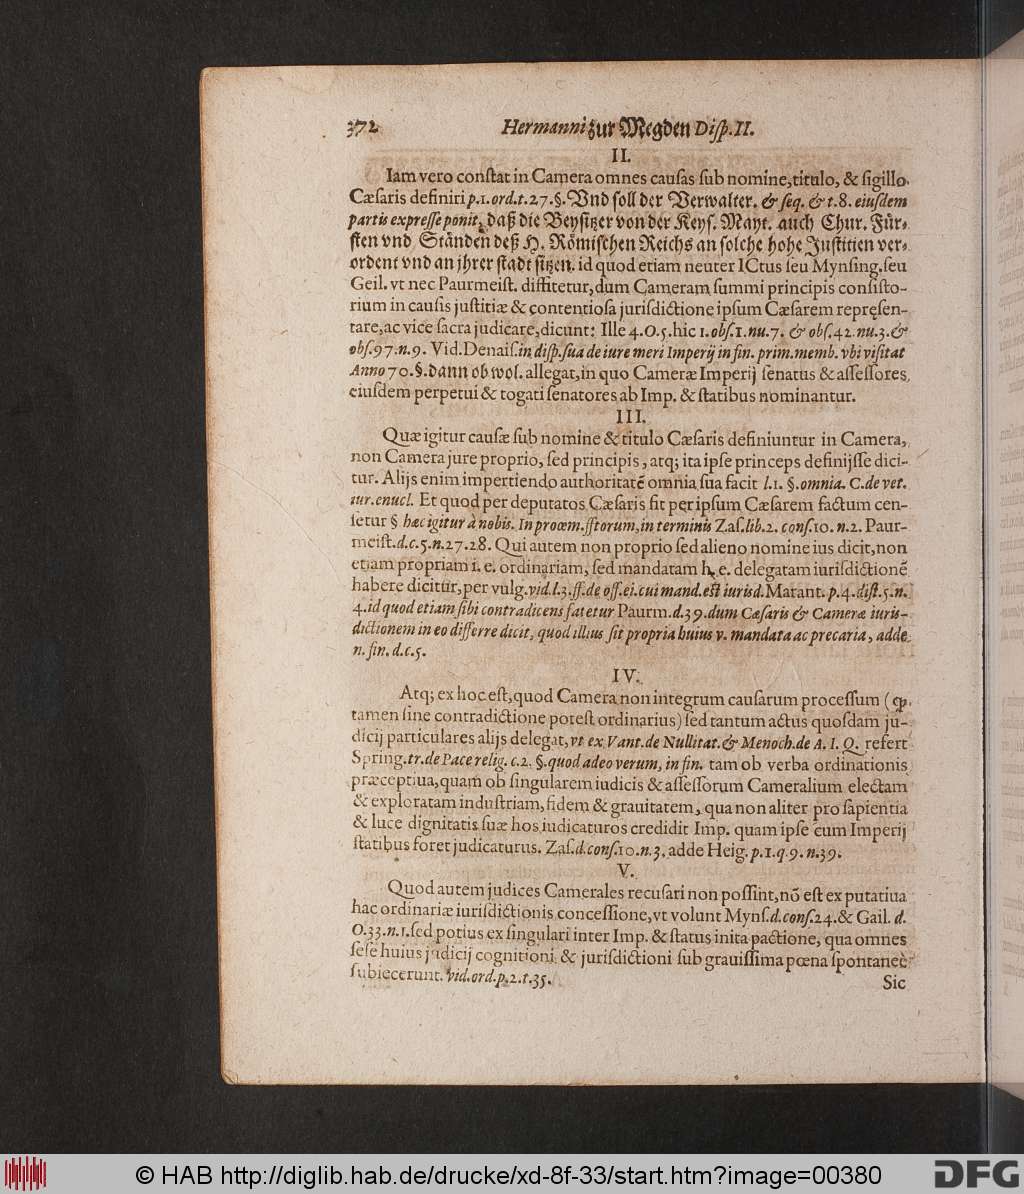 372 Hermanni zur Megden Disp. II.
II.
Iam vero constat in Camera omnes causas sub nomine, titulo, & sigillo
Cæsaris definiri p. 1. ord. t. 27. §. Vnd soll der Verwalter. & seq. & t. 8. eiusdem
partis expresse ponit, daß die Beysitzer von der Keys. Mayt. auch Chur. Für-
sten vnd Ständen deß H. Römischen Reichs an solche hohe Justitien ver-
ordent vnd an jhrer stadt sitzen. id quod etiam neuter ICtus seu Mynsing. seu
Geil. vt nec Paurmeist. diffitetur, dum Cameram summi principis consisto-
rium in causis justitiæ & contentiosa jurisdictione ipsum Cæsarem repręsen-
tare, ac vice sacra judicare, dicunt: Ille 4. O. 5. hic 1. obs. 1. nu. 7. & obs. 42. nu. 3. &
obs. 97. n. 9. Vid. Denais. in disp. sua de iure meri Imperij in fin. prim. memb. vbi visitat
Anno 70. §. dann ob wol. allegat, in quo Cameræ Imperij senatus & assessores
eiusdem perpetui & togati senatores ab Imp. & statibus nominantur.
III.
Quæ igitur causæ sub nomine & titulo Cæsaris definiuntur in Camera,
non Camera jure proprio, sed principis, atq; ita ipse princeps definijsse dici-
tur. Alijs enim impertiendo authoritatē omnia sua facit l. 1. §. omnia. C. de vet.
iur. enucl. Et quod per deputatos Cæsaris fit per ipsum Cæsarem factum cen-
setur § hæc igitur à nobis. In proœm. fftorum, in terminis Zas. lib. 2. cons. 10. n. 2. Paur-
meist. d. c. 5. n. 27. 28. Qui autem non proprio sed alieno nomine ius dicit, non
etiam propriam i. e. ordinariam, sed mandatam h. e. delegatam iurisdictionē
habere dicitur, per vulg. vid. l. 3. ff. de off. ei. cui mand. est iurisd. Marant. p. 4. dist. 5. n.
4. id quod etiam sibi contradicens fatetur Paurm. d. 39. dum Cæsaris & Cameræ iuris-
dictionem in eo differre dicit, quod illius sit propria huius v. mandata ac precaria, adde
n. fin. d. c. 5.
IV.
Atq; ex hoc est, quod Camera non integrum causarum processum (ꝙ
tamen sine contradictione potest ordinarius) sed tantum actus quosdam ju-
dicij particulares alijs delegat, vt ex Vant. de Nullitat. & Menoch. de A. I. Q. refert
Spring. tr. de Pace relig. c. 2. §. quod adeo verum, in fin. tam ob verba ordinationis
præceptiua, quam ob singularem iudicis & assessorum Cameralium electam
& exploratam industriam, fidem & grauitatem, qua non aliter pro sapientia
& luce dignitatis suæ hos iudicaturos credidit Imp. quam ipse cum Imperij
statibus foret judicaturus. Zas. d. cons. 10. n. 3. adde Heig. p. 1. q. 9. n. 39.
V.
Quod autem judices Camerales recusari non possint, nō est ex putatiua
hac ordinariæ iurisdictionis concessione, vt volunt Myns. d. cons. 24. & Gail. d.
O. 33. n. 1. sed potius ex singulari inter Imp. & status inita pactione, qua omnes
sese huius judicij cognitioni & jurisdictioni sub grauissima pœna spontaneè
subiecerunt. vid. ord. p. 2. t. 35.
Sic
© HAB http://diglib.hab.de/drucke/xd-8f-33/start.htm?image=00380
DFG